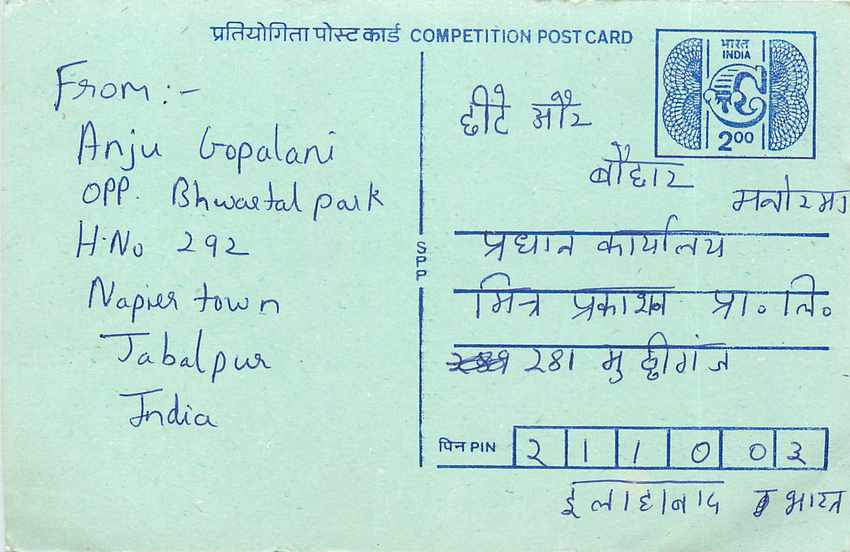 प्रतियोगिता पोस्ट कार्ड COMPETITION POST CARD
भारत
INDIA
2.00
From:-
Anju Gopalani
OPP. Bhwartal park
H.No 292
Napier town
Jabalpur
India
SPP
छीटे और
बौछार
मनोरमा
प्रधान कार्यालय
मित्र प्रकाशन प्रा. लि.
२८१ मुठ्ठीगंज
पिन PIN २११००३
इलाहाबाद भारत